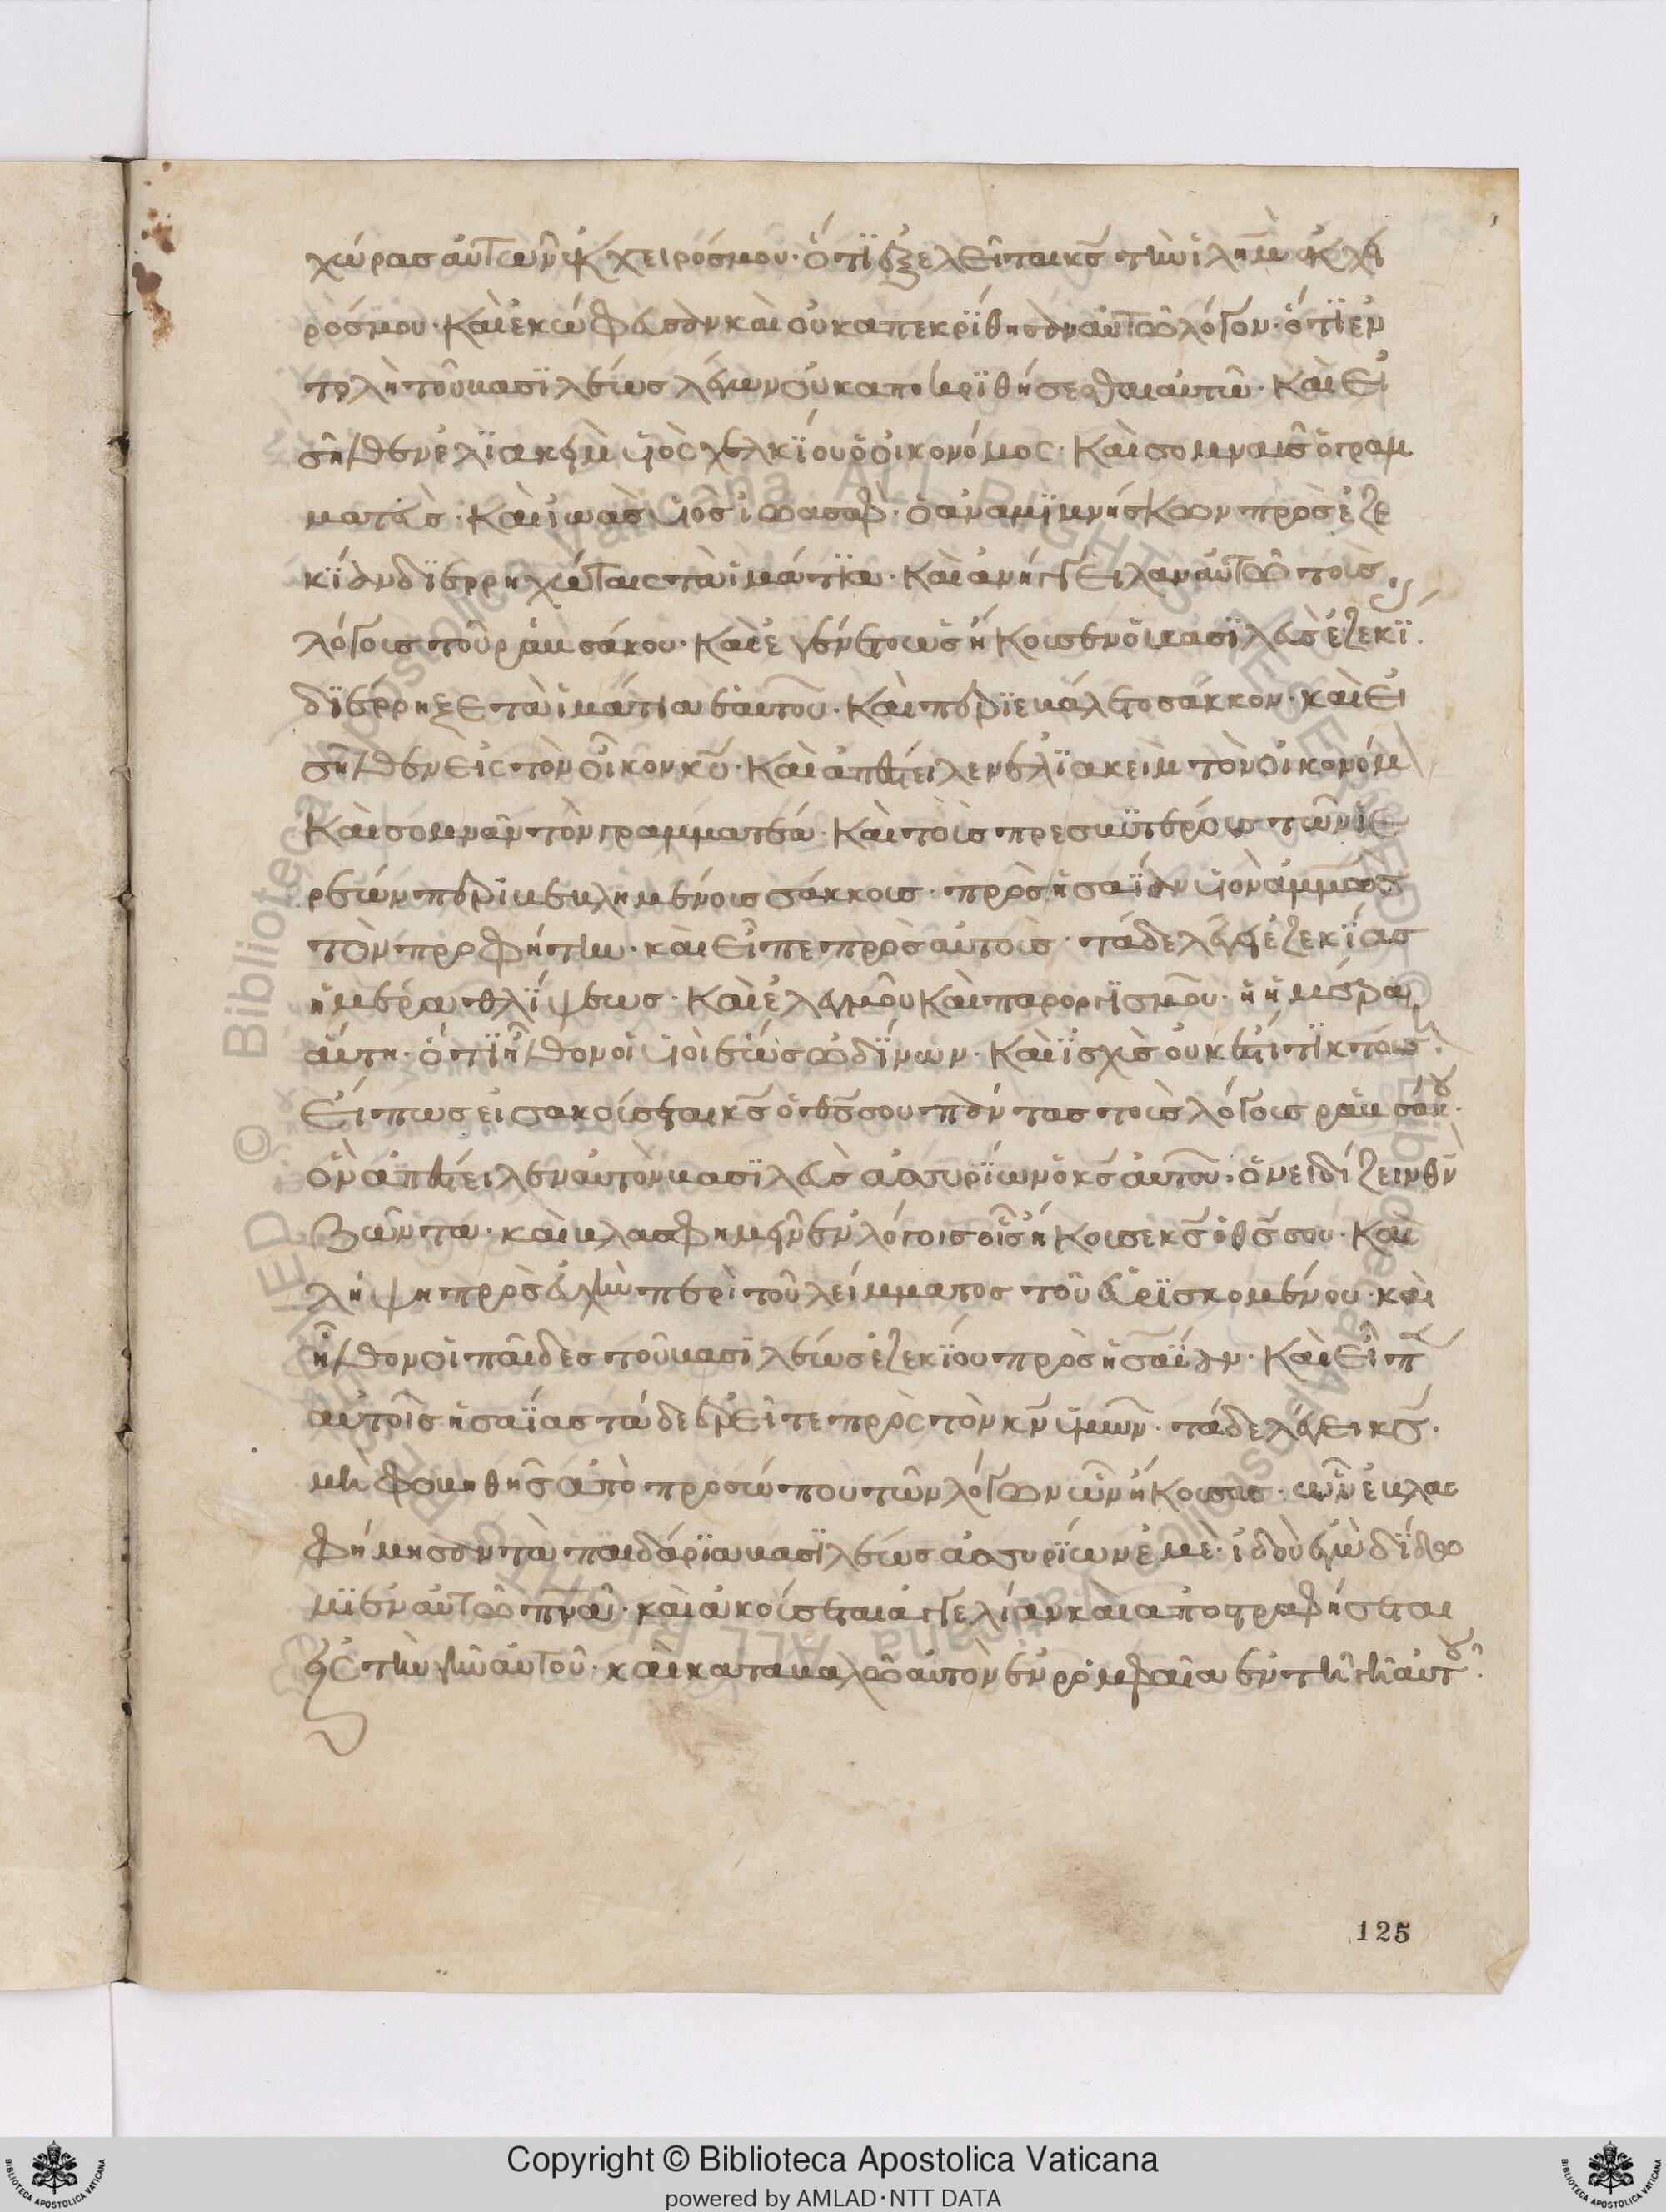 χώρας αὐτῶν ἐκ χειρός μου· ὅτι ἐξελεῖται κς τὴν ἰλημ ἐκ χει
ρός μου· Καὶ ἐκώφευσαν καὶ οὐκ ἀπεκρίθησαν αὐτῶ λόγον· ὅτι ἐν
τολὴ τοῦ βασιλέως λέγων οὐκ ἀποκριθήσεσθαι αὐτῶ· Καὶ εἰ
σῆλθεν ἐλιακεὶμ υἱὸς χελκίου ὁ οἰκονόμος· Καὶ σομνὰς ὁ γραμ
ματεὺς· Καὶ ἰωὰς υἱὸς ἰωασαφ· ὁ ἀναμιμνήσκων πρὸς ἐζε
κίαν διερρηχότες τὰ ἱμάτια· Καὶ ἀνήγγειλαν αὐτῶ τοὺς
λόγους τοῦ ραψάκου· Καὶ ἐγένετο ὡς ἤκουσεν ὁ βασιλεὺς ἐζεκί
διέρρηξε τὰ ἱμάτια ἑαυτοῦ· Καὶ περιεβάλετο σάκκον· καὶ εἰ
σῆλθεν εἰς τὸν οἶκον κυ· Καὶ ἀπέστειλεν ἐλιακεὶμ τὸν οἰκονόμ
Καὶ σομνὰν τὸν γραμματέα· Καὶ τοὺς πρεσβυτέρους τῶν ἱε
ρέων περιβεβλημένους σάκκους· πρὸς ἡσαΐαν υἱὸν ἀμμὼς
τὸν προφήτην· καὶ εἶπε πρὸς αὐτοὺς· τάδε λέγει ἐζεκίας
ἡμέρα θλίψεως· Καὶ ἐλεγμοῦ καὶ παροργισμοῦ· ἡ ἡμέρα
αὕτη· ὅτι ἦλθον οἱ υἱοὶ ἕως ὠδίνων· Καὶ ἰσχὺς οὐκ ἔστι τικτούσ
Εἴ πως εἰσακούσεται κς ὁ θς σου πάντας τοὺς λόγους ραψάκου·
ὃν ἀπέστειλεν αὐτὸν βασιλεὺς ἀσσυρίων ὁ κς αὐτοῦ· ὀνειδίζειν θν
ζῶντα· καὶ βλασφημεῖν ἐν λόγοις οἷς ἤκουσε κς ὁ θς σου· Καὶ
λήψη πρὸς εὐχὴν περὶ τοῦ λείμματος τοῦ εὑρισκομένου· καὶ
ἦλθον οἱ παῖδες τοῦ βασιλέως ἐζεκίου πρὸς ἡσαΐαν· Καὶ εἶπ
αὐτοῖς ἡσαΐας τάδε ἐρεῖτε πρὸς τὸν κν ὑμῶν· τάδε λέγει κς·
μὴ φοβηθῆς ἀπὸ προσώπου τῶν λόγων ὧν ἤκουσας· ὧν ἐβλας
φήμησαν τὰ παιδάρια βασιλέως ἀσσυρίων ἐμὲ· ἰδοὺ ἐγὼ δίδω
μι ἐν αὐτῶ πνα· καὶ ἀκούσεται ἀγγελίαν καὶ ἀποστραφήσεται
εἰς τὴν γῆν αὐτοῦ· καὶ καταβαλῶ αὐτὸν ἐν ρομφαία ἐν τῆ γῆ αὐτοῦ·
125
Copyright © Biblioteca Apostolica Vaticana
powered by AMLAD·NTT DATA